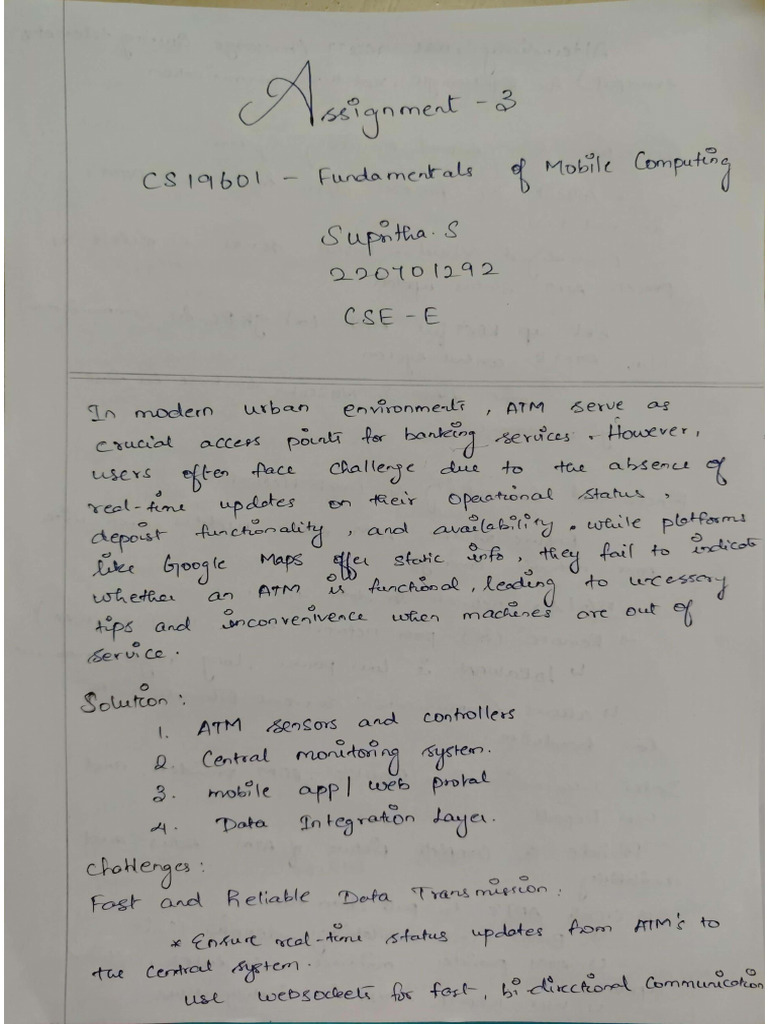 Assignment - 3
CS19601 - Fundamentals of Mobile Computing
Supritha. S
220701292
CSE - E
In modern urban environments, ATM serve as
crucial access points for banking services. However,
users often face challenge due to the absence of
real-time updates on their operational status,
depoist functionality, and availability. while platforms
like Google Maps offer static info, they fail to indicate
whether an ATM is functional, leading to uccessary
tips and inconvenivence when machines are out of
service.
Solution:
1. ATM sensors and controllers
2. Central monitoring system.
3. mobile app / web protal
4. Data Integration Layer.
Challenges:
Fast and Reliable Data Transmission:
* Ensure real-time status updates from ATM's to
the central system.
use websockets for fast, bi-directional communication